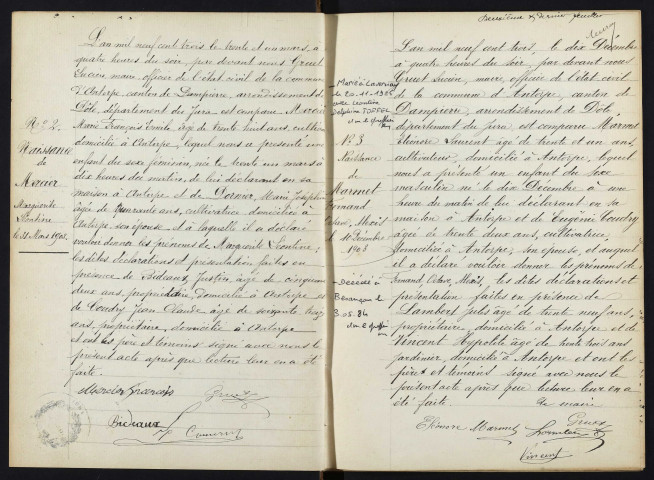 L'an mil neuf cent trois le trente et un mars, à
quatre heures du soir, par devant nous Gruet
Lucien maire officier de l'état civil de la commune
d'Antorpe, canton de Dampierre, arrondissement de
Dôle, département du Jura, est comparu
Marie François âgé de trente huit ans, cultivateur
domicilié à Antorpe, lequel nous a présenté un
enfant du sexe féminin, né le trente un mars à
dix heures du matin, de lui déclarant en sa
maison à Antorpe et de Marie Joséphine
âgée de quarante ans, cultivatrice domiciliée à
Antorpe, son épouse, et à laquelle il a déclaré
vouloir donner les prénoms de Marguerite Léontine;
les dites déclarations et présentation faites en
présence de Bidaux Justin, âgé de cinquante
deux ans, propriétaire, domicilié à Antorpe et
de Coudry Jean Claude âgé de soixante
ans, propriétaire, domicilié à Antorpe
et ont les père et témoins signé avec nous le
présent acte après que lecture leur en a été
faite.
Bidaux
N° 2
Naissance
de
Marguerite
Léontine
le 31 Mars 1903
Deuxième & dernier feuillet
L'an mil neuf cent trois, le dix Décembre
à quatre heures du soir, par devant nous
Gruet Lucien, maire, officier de l'état civil
de la commune d'Antorpe, canton de
Dampierre, arrondissement de Dôle
département du Jura est comparu Marmet
Eléonore Laurent âgé de trente et un ans,
cultivateur, domicilié à Antorpe, lequel
nous a présenté un enfant du sexe
masculin né le dix Décembre à une
heure du matin de lui déclarant en sa
maison à Antorpe et de Eugénie Coudry
âgée de trente deux ans, cultivatrice,
domiciliée à Antorpe, son épouse, et auquel
il a déclaré vouloir donner les prénoms de
Fernand, les dites déclarations et
présentation faites en présence de
Lambert âgé de trente neuf ans,
propriétaire, domicilié à Antorpe et de
Vincent Hyppolite âgé de trente trois ans
jardinier, domicilié à Antorpe et ont les
père et témoins signé avec nous le
présent acte après que lecture leur en a
été faite. Le maire
Eléonore Marmet
Vincent
Marié à
le 20.11.1926
avec Léontine
N° 3
Naissance
de
Marmet
Fernand
10 Décembre
1903
Décédé à
Besançon le
3.05.84